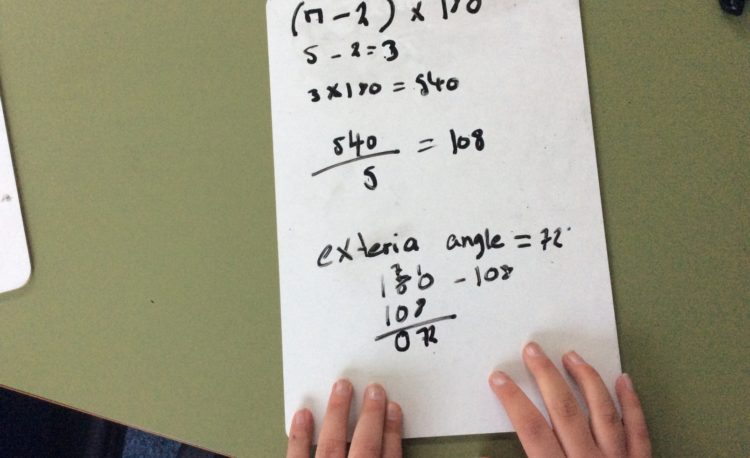 (n-2) × 180
5 - 2 = 3
3 × 180 = 540
540
5
= 108
exteria angle = 72°
180 - 108
7 1
108
072